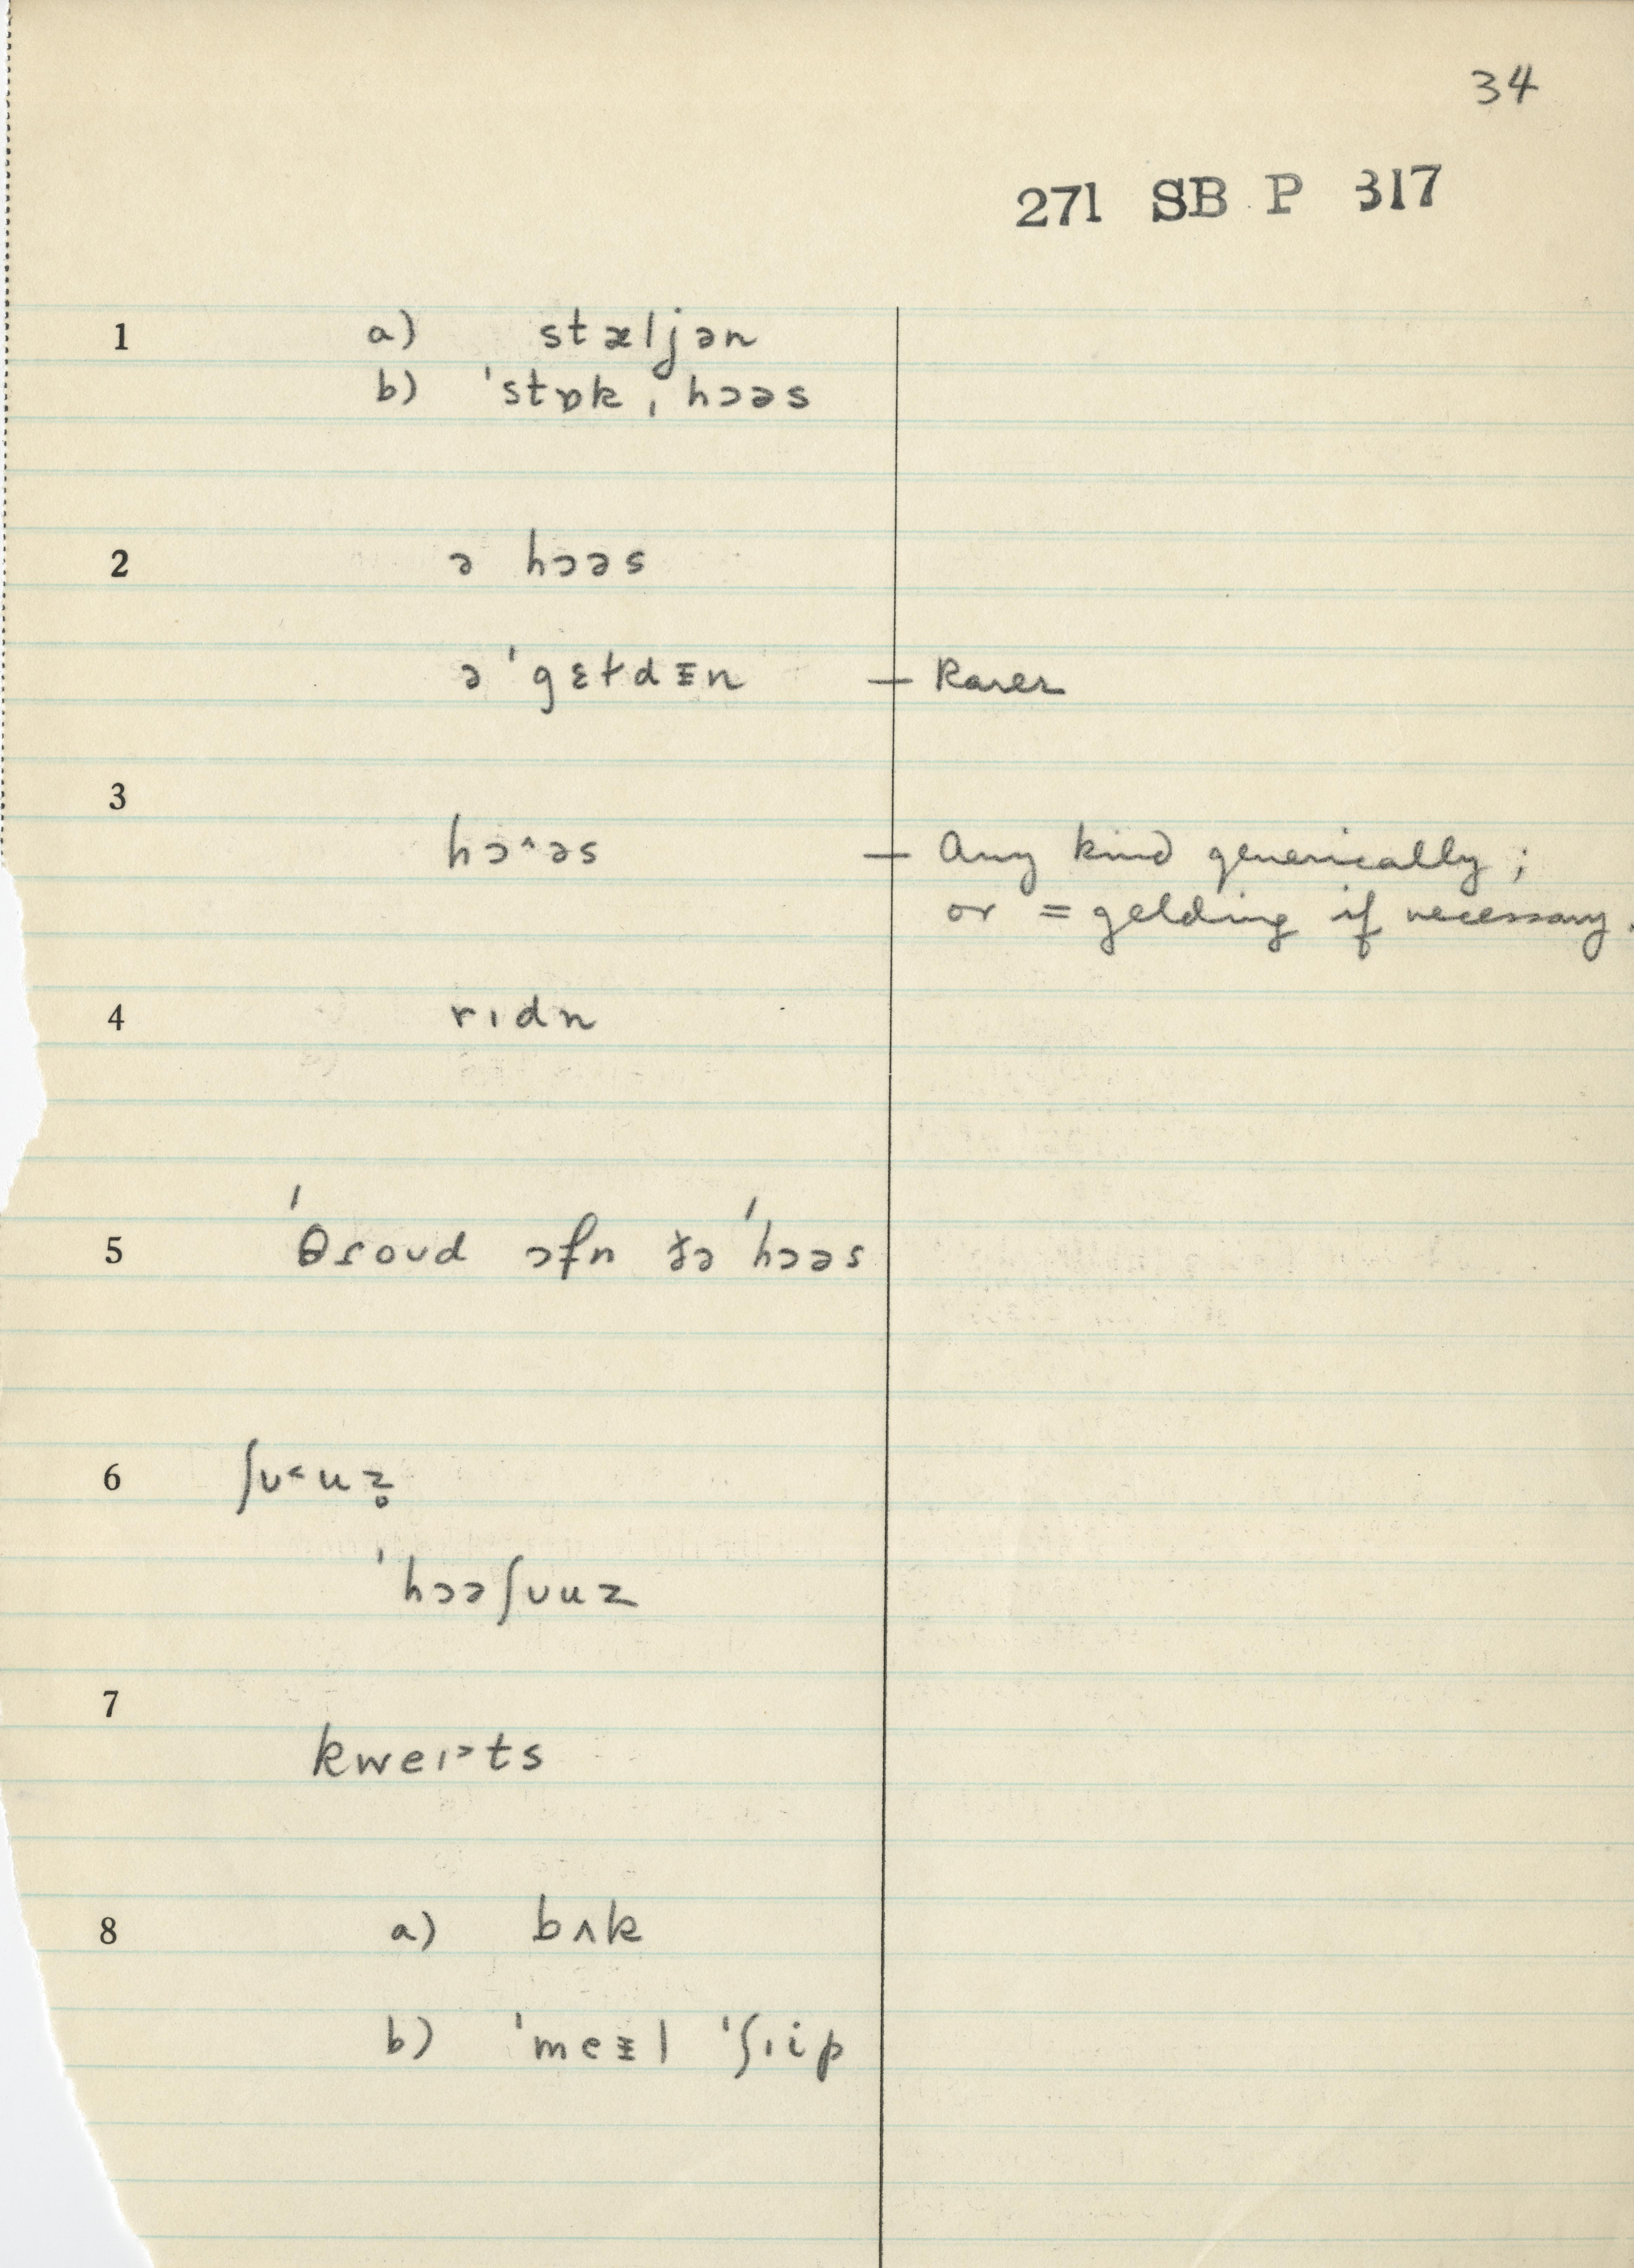 34
271 SB P 317
1 a) stæljən
b) ˈstɒk ˌhɔəs
2 ə hɔəs
ə ˈgɛɫdɪ̵n — Rarer
3
hɔ^əs — Any kind generically;
or = gelding if necessary.
4 rɪdn
5 ˈθɾoʊd ɔfn ðə ˈhɔəs
6 ʃʊ˂uz̥
ˈhɔəʃʊuz
7
kweɪ˃ts
8 a) bʌk
b) ˈmeɪ̵l ˈʃɪip